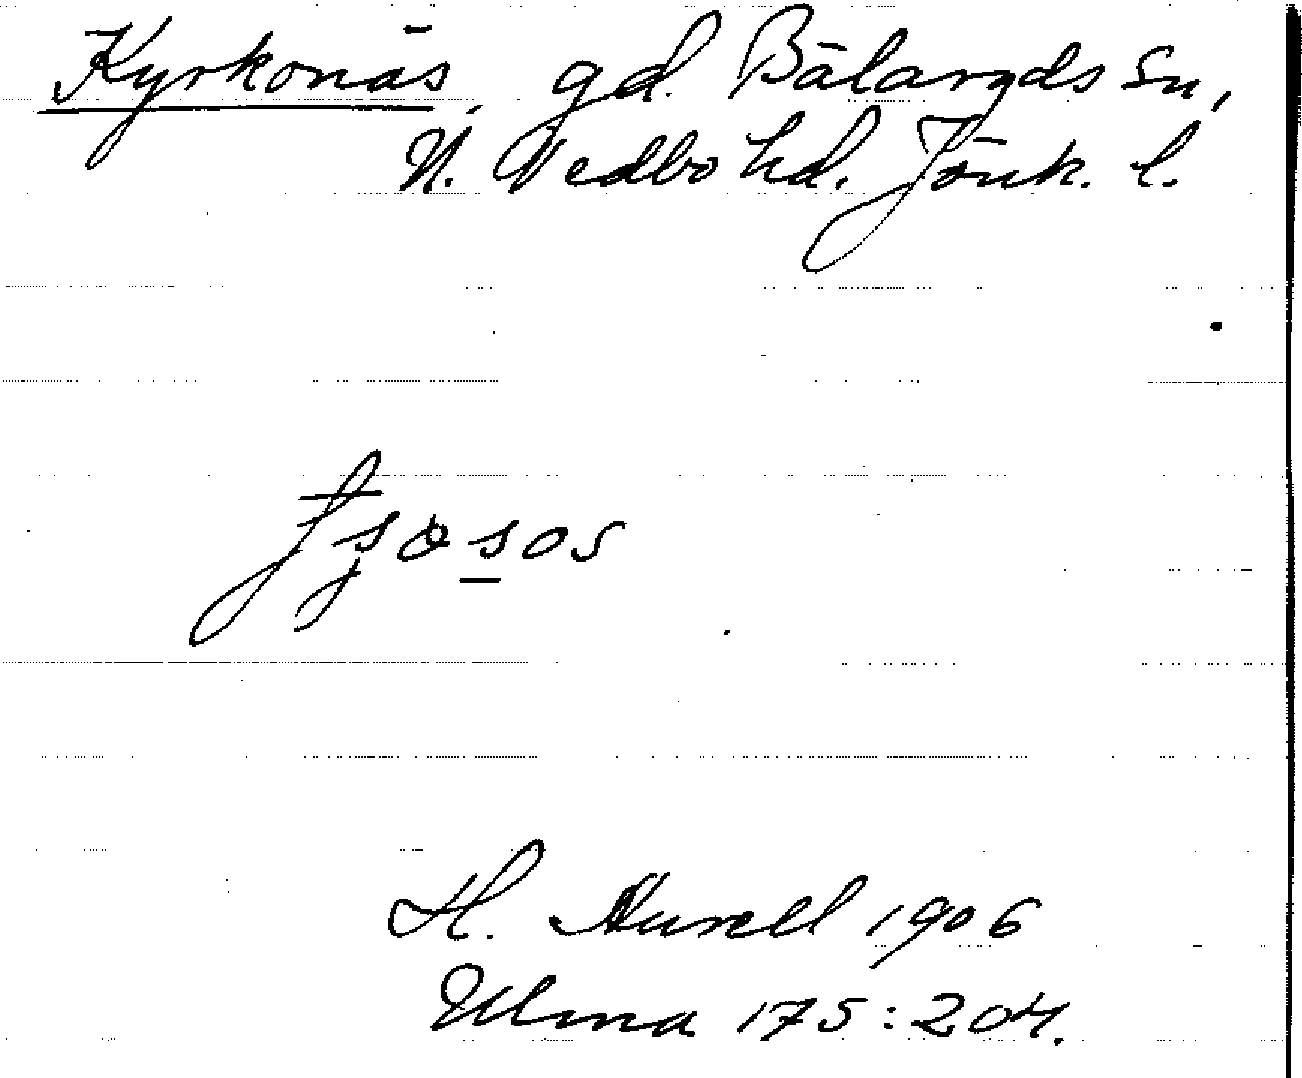 Kyrkonäs, gd. Bälaryds sn,
N. Vedbo hd. Jönk. l.
H. Aurell 1906
Ulma 175:204.